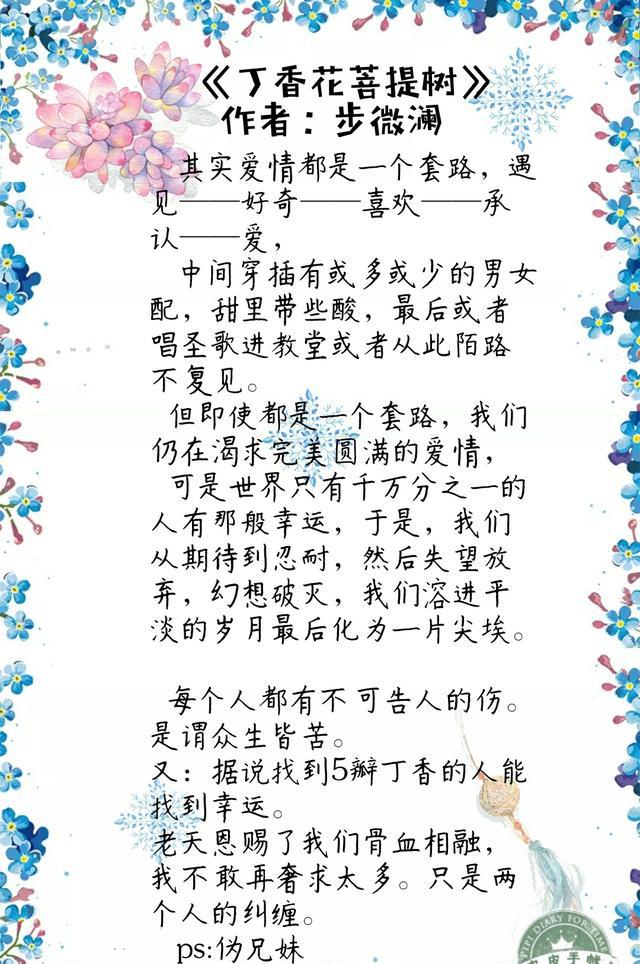 《丁香花菩提树》
作者：步微澜
其实爱情都是一个套路，遇
见——好奇——喜欢——承
认——爱，
中间穿插有或多或少的男女
配，甜里带些酸，最后或者
唱圣歌进教堂或者从此陌路
不复见。
但即使都是一个套路，我们
仍在渴求完美圆满的爱情，
可是世界只有千万分之一的
人有那般幸运，于是，我们
从期待到忍耐，然后失望放
弃，幻想破灭，我们溶进平
淡的岁月最后化为一片尖埃。
每个人都有不可告人的伤。
是谓众生皆苦。
又：据说找到5瓣丁香的人能
找到幸运。
老天恩赐了我们骨血相融，
我不敢再奢求太多。只是两
个人的纠缠。
ps:伪兄妹
PIPI DIARY FOR TIME